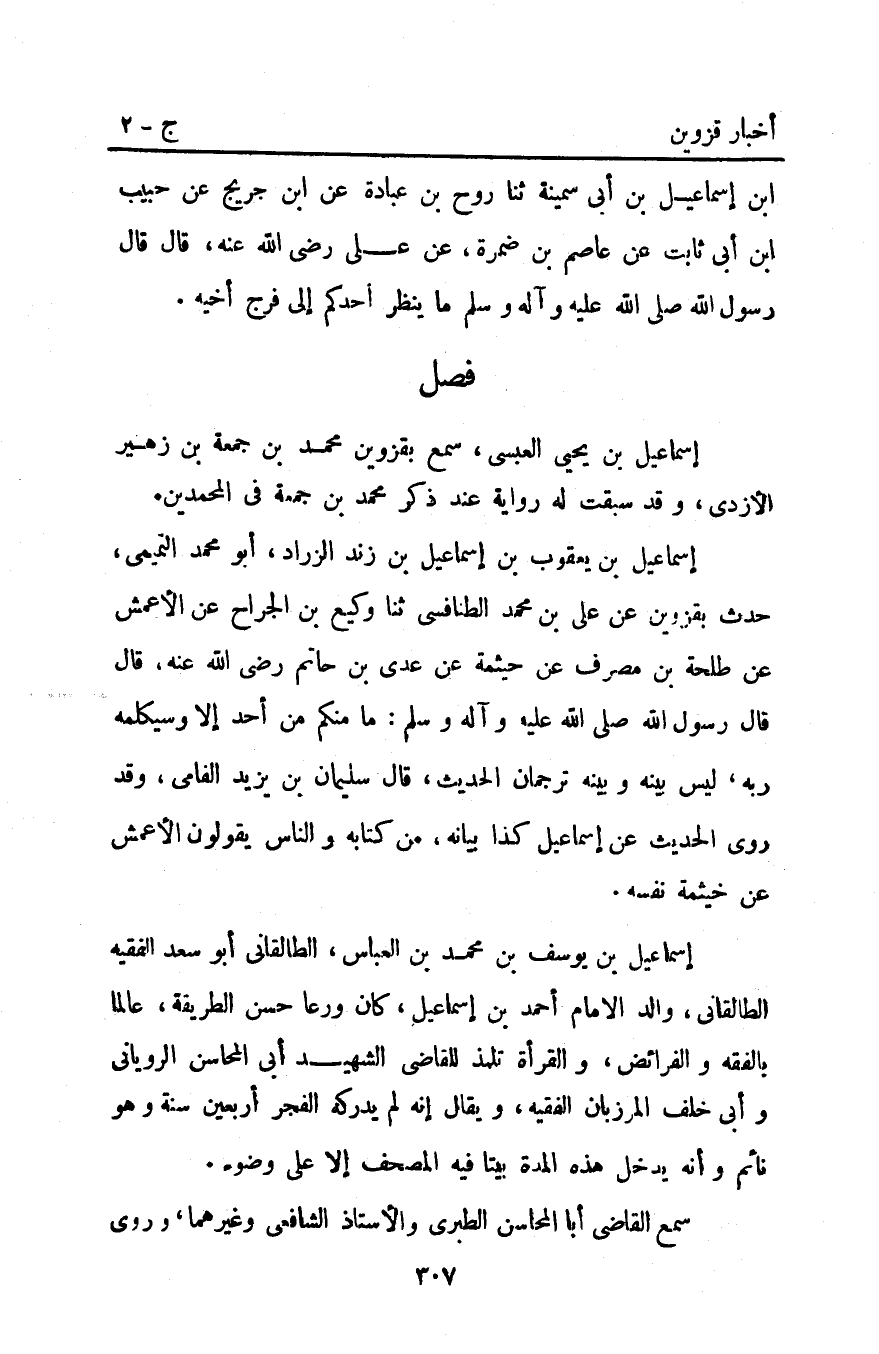 أخبار قزوين ج - ٢
ابن إسماعيل بن أبى سمينة ثنا روح بن عبادة عن ابن جريج عن حبيب
ابن أبى ثابت عن عاصم بن ضمرة، عن على رضى الله عنه، قال قال
رسول الله صلى الله عليه و آله و سلم ما ينظر أحدكم إلى فرج أخيه .
فصل
إسماعيل بن يحيى العبسى، سمع بقزوين محمد بن جمعة بن زهير
الأزدى، و قد سبقت له رواية عند ذكر محمد بن جمعة فى المحمدين.
إسماعيل بن يعقوب بن إسماعيل بن زند الزراد، أبو محمد التميمى،
حدث بقزوين عن على بن محمد الطنافسى ثنا وكيع بن الجراح عن الأعمش
عن طلحة بن مصرف عن حيثمة عن عدى بن حاتم رضى الله عنه، قال
قال رسول الله صلى الله عليه و آله و سلم : ما منكم من أحد إلا وسيكلمه
ربه، ليس بينه و بينه ترجمان الحديث، قال سليمان بن يزيد الفامى، وقد
روى الحديث عن إسماعيل كذا بيانه، من كتابه و الناس يقولون الأعمش
عن خيثمة نفسه .
إسماعيل بن يوسف بن محمد بن العباس، الطالقانى أبو سعد الفقيه
الطالقانى، والد الامام أحمد بن إسماعيل، كان ورعا حسن الطريقة، عالما
بالفقه و الفرائض، و القرأة تلمذ للقاضى الشهيد أبى المحاسن الرويانى
و أبى خلف المرزبان الفقيه، و يقال إنه لم يدركه الفجر أربعين سنة و هو
نائم و أنه يدخل هذه المدة بيتا فيه المصحف إلا على وضوء .
سمع القاضى أبا المحاسن الطبرى والأستاذ الشافعى وغيرهما، و روى
٣٠٧